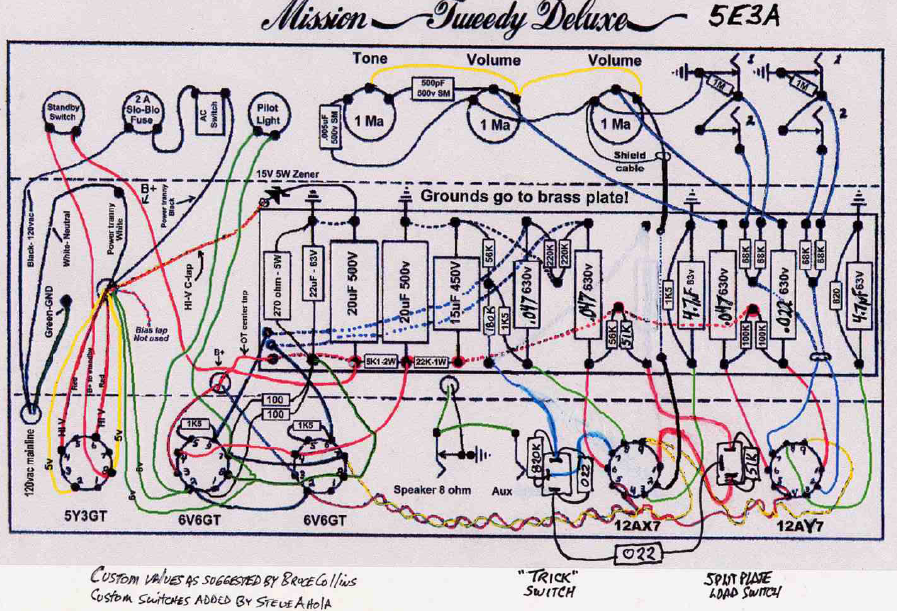 Mission Tweedy Deluxe 5E3A
Tone
Volume
Volume
Standby
Switch
2 A
Slo-Blo
Fuse
AC
Switch
Pilot
Light
500pF
500v SM
.005uF
500v SM
1 Ma
1 Ma
1 Ma
1M
1M
1
2
1
2
Shield
cable
15V 5W Zener
Grounds go to brass plate!
B+
Power tranny
Black
Power tranny
White
Black- 120vac
White- Neutral
Green-GND
HI-V C-tap
Bias tap
Not used
270 ohm - 5W
22uF - 63V
20uF 500V
20uF 500v
15uF 450V
56K
1K5
.047 630v
220K
220K
.047 630v
56K
51K
1K5
4.7µF 63v
.047 630v
68K
68K
100K
100K
.022 630v
68K
68K
820
4.7µF 63V
OT center tap
B+
5K1-2W
22K-1W
Red
B+ to standby
Red
HI-V
HI-V
5v
5v
6v
6v
120vac mainline
100
100
1K5
1K5
Speaker 8 ohm
Aux
820K
.022
51K
5Y3GT
6V6GT
6V6GT
12AX7
12AY7
.022
CUSTOM VALUES AS SUGGESTED BY BRUCE COLLINS
CUSTOM SWITCHES ADDED BY STEVE AHOLA
"TRICK"
SWITCH
SPLIT PLATE
LOAD SWITCH